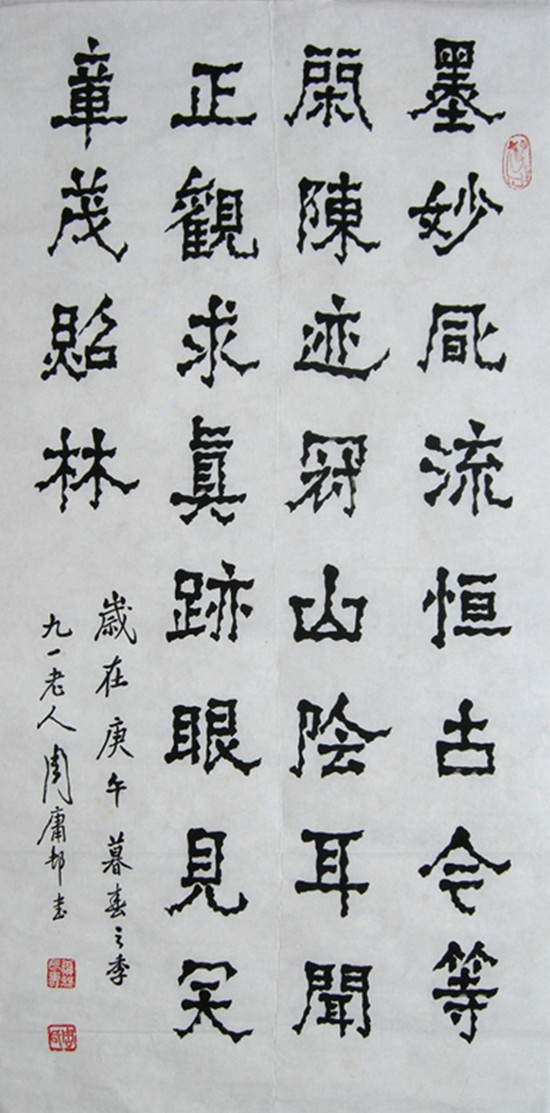 墨妙風流恒古今等
閑陳迹山陰耳聞
正觀求真跡眼見
章茂貽林
歲在庚午暮春之季
九一老人周庸邨書